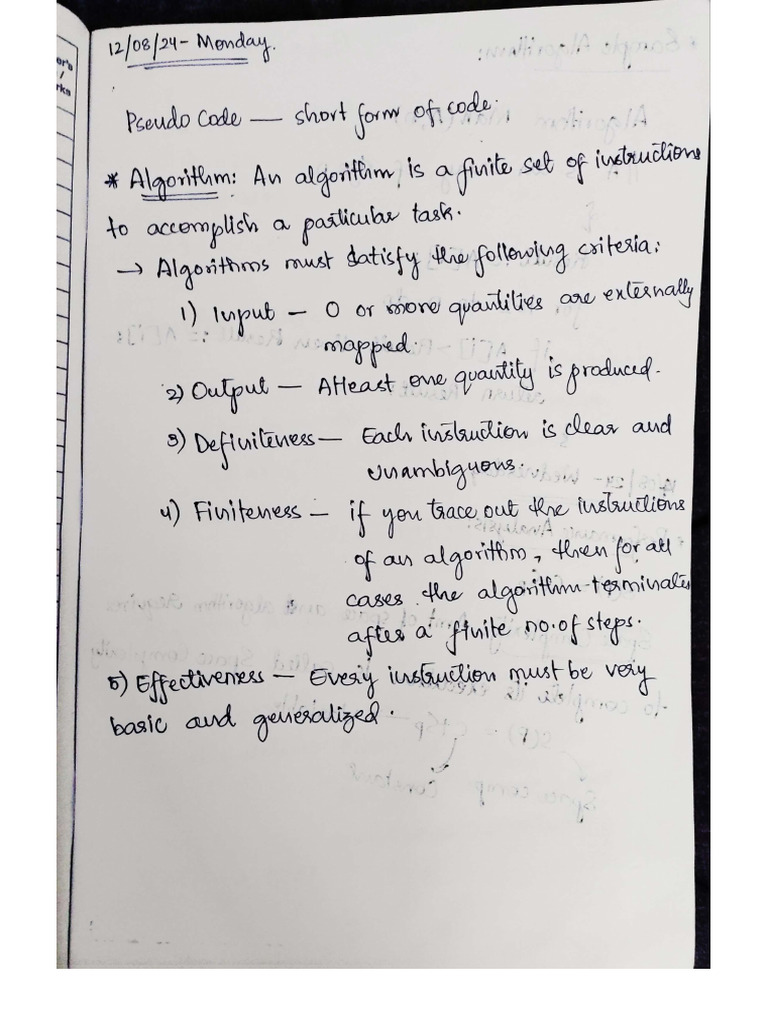 12/08/24 - Monday.
Pseudo Code — short form of code.
* Algorithm: An algorithm is a finite set of instructions
to accomplish a particular task.
→ Algorithms must satisfy the following criteria:
1) Input — 0 or more quantities are externally
mapped.
2) Output — Atleast one quantity is produced.
3) Definiteness — Each instruction is clear and
unambiguous.
4) Finiteness — if you trace out the instructions
of an algorithm, then for all
cases the algorithm terminates
after a finite no. of steps.
5) Effectiveness — Every instruction must be very
basic and generalized.